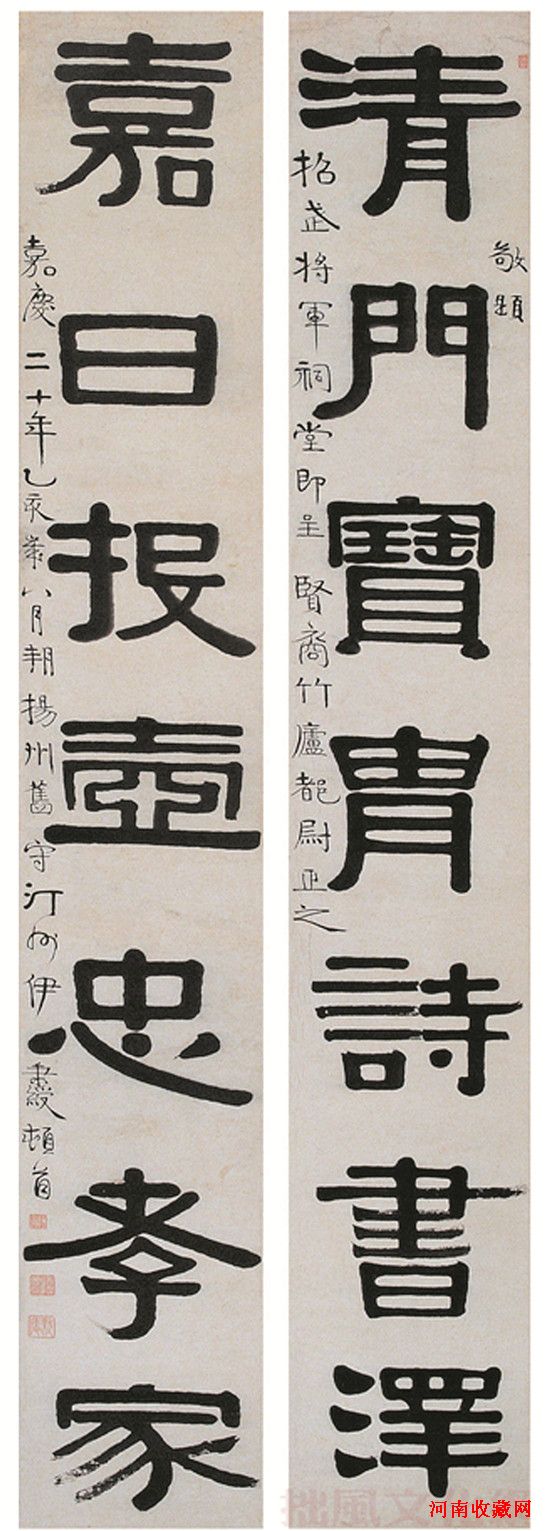 清門寶胄詩書澤
敬題
招武將軍祠堂即呈賢裔竹廬都尉正之
嘉日投壺忠孝家
嘉慶二十年乙亥歲八月朔揚州舊守汀州伊秉綬頓首
河南收藏网